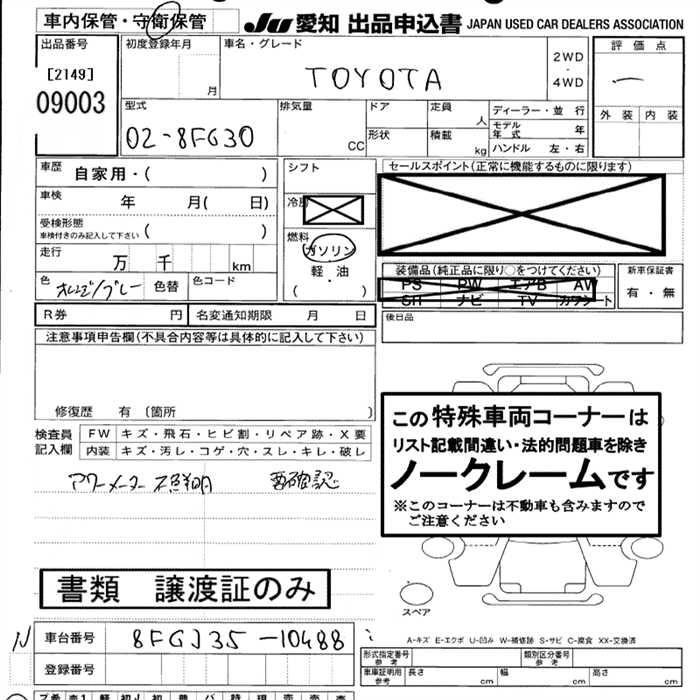 車内保管・守衛保管
JU 愛知 出品申込書 JAPAN USED CAR DEALERS ASSOCIATION
出品番号
[2149]
09003
初度登録年月
月
車名・グレード
TOYOTA
2WD
・
4WD
評価点
外装 内装
型式
02-8FG30
排気量
CC
ドア
形状
定員
人
積載
kg
ディーラー・並行
モデル年式 年
ハンドル 左・右
車歴
自家用・( )
車検
年 月( 日)
受検形態
車検付きのみ記入して下さい ( )
走行
万 千 km
色
オレンジ/グレー
色替
色コード
シフト
燃料
ガソリン
軽・油
( )
セールスポイント(正常に機能するものに限ります)
装備品(純正品に限り○をつけてください)
PS PW エアB AW
SR ナビ TV カワシート
新車保証書
有・無
R券 円
名変通知期限 月 日
後日品
注意事項申告欄(不具合内容等は具体的に記入して下さい)
修復歴 有 (箇所 )
検査員
記入欄
FW キズ・飛石・ヒビ割・リペア跡・X要
内装 キズ・汚レ・コゲ・穴・スレ・キレ・破レ
アワーメーター不鮮明 要確認
この特殊車両コーナーは
リスト記載間違い・法的問題車を除き
ノークレームです
※このコーナーは不動車も含みますので
ご注意ください
書類 譲渡証のみ
スペア
N
車台番号
8FGJ35-10488
登録番号
A-キズ E-エクボ U-凹み W-補修跡 S-サビ C-腐食 XX-交換済
形式指定番号
参考
類別区分番号
参考
車車証明用
参考
長さ cm
幅 cm
高さ cm